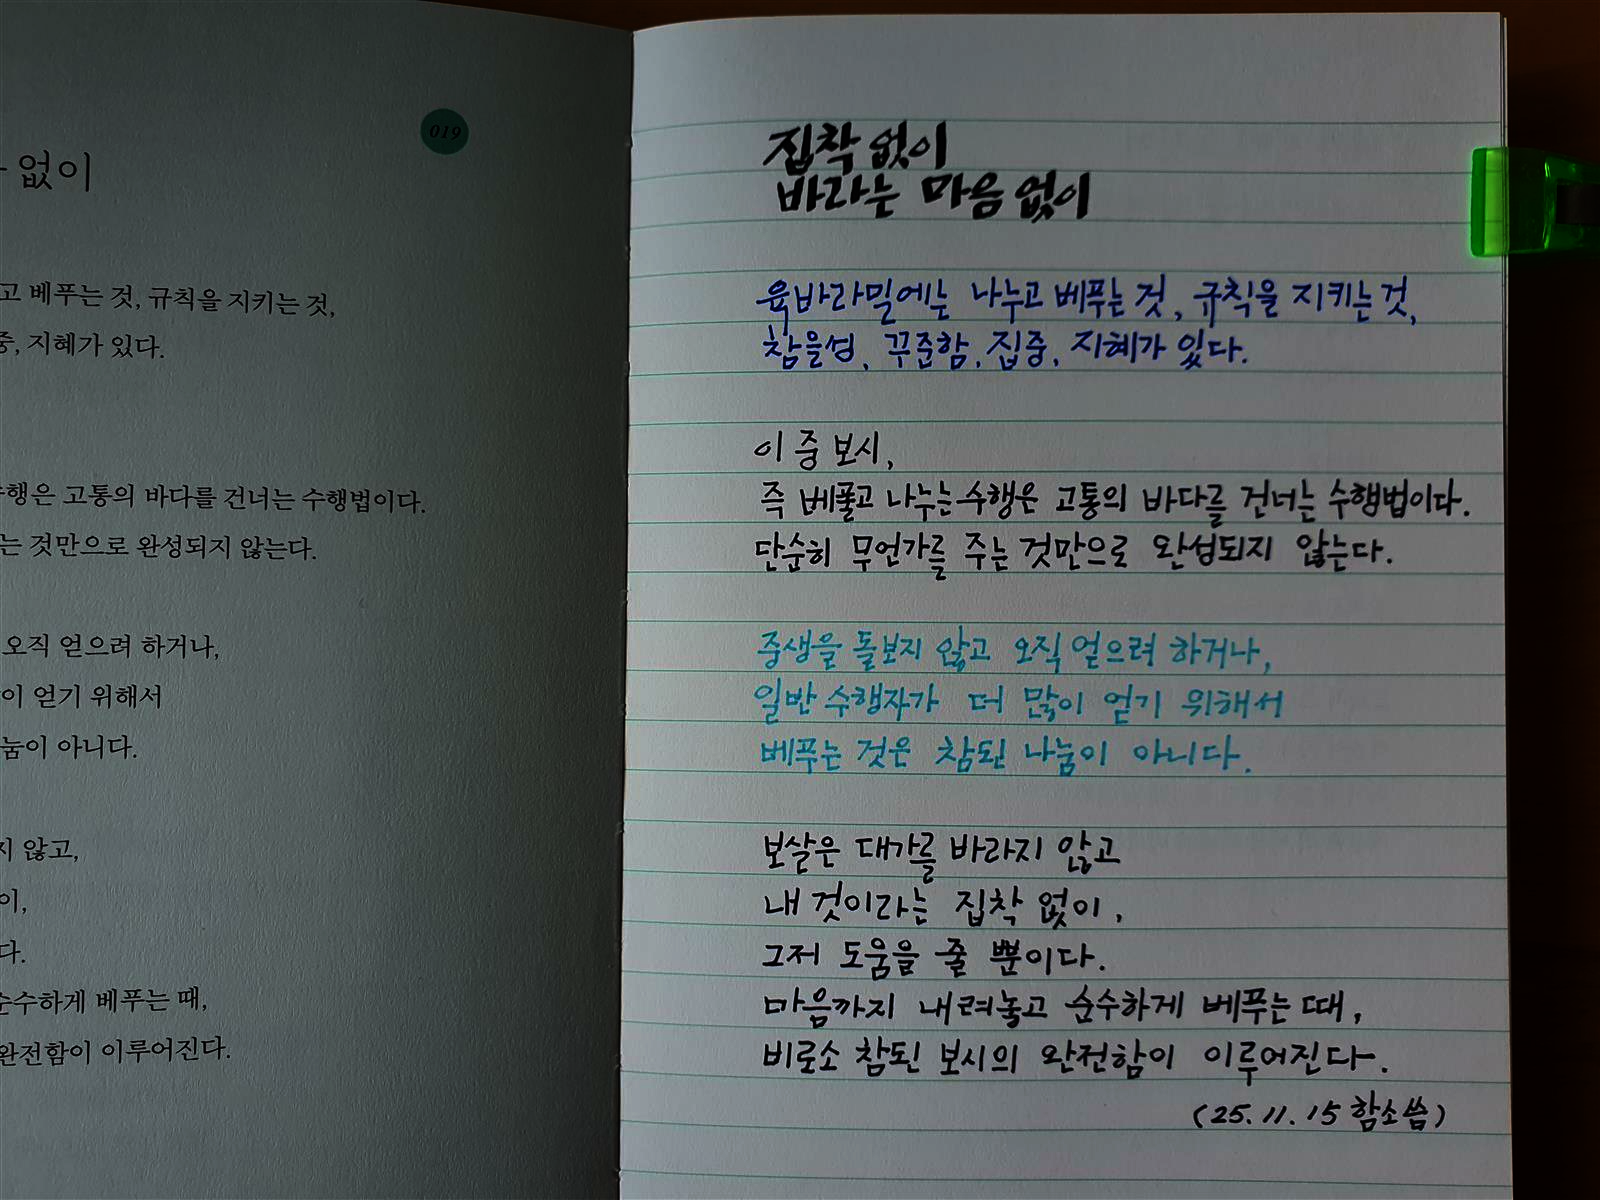 019
없이
고 베푸는 것, 규칙을 지키는 것,
중, 지혜가 있다.
수행은 고통의 바다를 건너는 수행법이다.
는 것만으로 완성되지 않는다.
오직 얻으려 하거나,
이 얻기 위해서
눔이 아니다.
지 않고,
이,
다.
순수하게 베푸는 때,
완전함이 이루어진다.
집착 없이
바라는 마음 없이
육바라밀에는 나누고 베푸는 것, 규칙을 지키는 것,
참을성, 꾸준함, 집중, 지혜가 있다.
이 중 보시,
즉 베풀고 나누는 수행은 고통의 바다를 건너는 수행법이다.
단순히 무언가를 주는 것만으로 완성되지 않는다.
중생을 돌보지 않고 오직 얻으려 하거나,
일반 수행자가 더 많이 얻기 위해서
베푸는 것은 참된 나눔이 아니다.
보살은 대가를 바라지 않고
내 것이라는 집착 없이,
그저 도움을 줄 뿐이다.
마음까지 내려놓고 순수하게 베푸는 때,
비로소 참된 보시의 완전함이 이루어진다.
(25.11.15 함소씀)